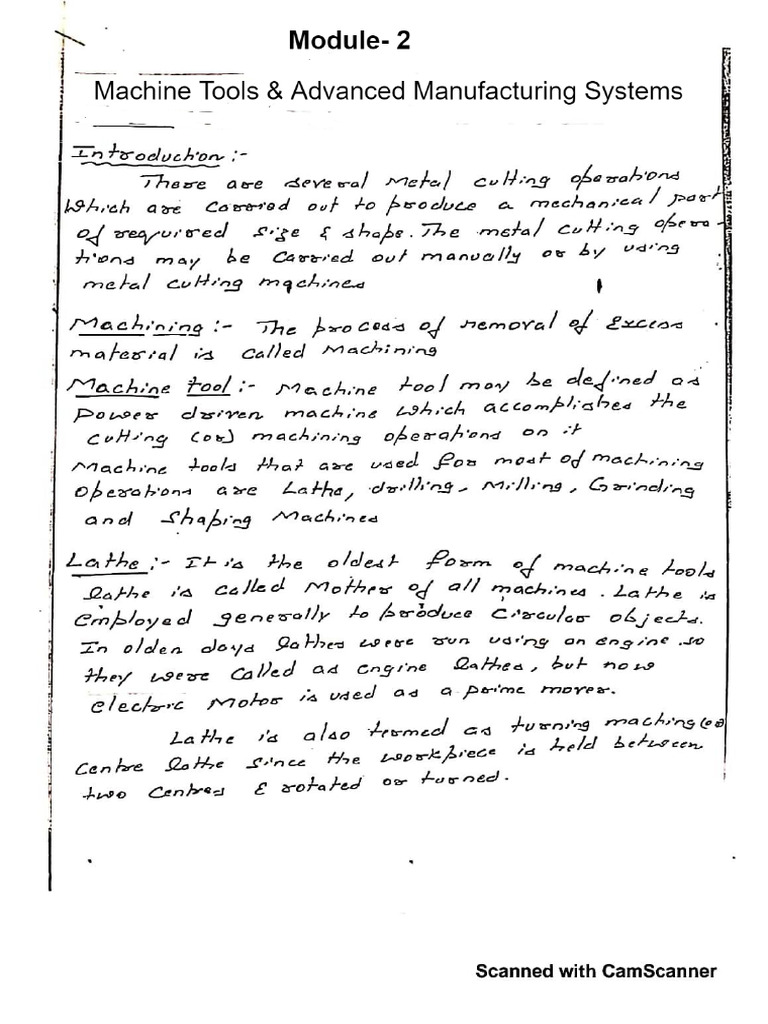 Module- 2
Machine Tools & Advanced Manufacturing Systems
Introduction :-
There are several Metal cutting operations
Which are carried out to produce a mechanical part
of required size & shape. The metal cutting opera-
tions may be carried out manually or by using
metal cutting machines
Machining :- The process of removal of Excess
material is called Machining
Machine tool :- Machine tool may be defined as
Power driven machine which accomplishes the
cutting (or) machining operations on it
Machine tools that are used for most of machining
operations are Lathe, drilling, Milling, Grinding
and Shaping Machines
Lathe :- It is the oldest form of machine tools
lathe is called Mother of all machines. Lathe is
employed generally to produce circular objects.
In olden days lathes were run using an engine so
they were called as engine lathes, but now
electric Motor is used as a prime mover.
Lathe is also termed as turning machine (or)
Centre lathe since the workpiece is held between
two Centres & rotated or turned.
Scanned with CamScanner